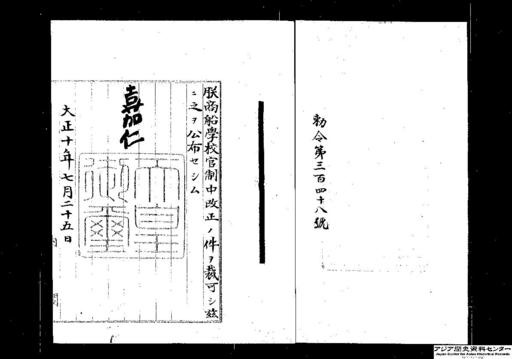 勅令第三百四十八號
朕商船學校官制中改正ノ件ヲ裁可シ玆
ニ之ヲ公布セシム
嘉仁
天皇御璽
大正十年七月二十五日
アジア歴史資料センター
Japan Center for Asian Historical Records